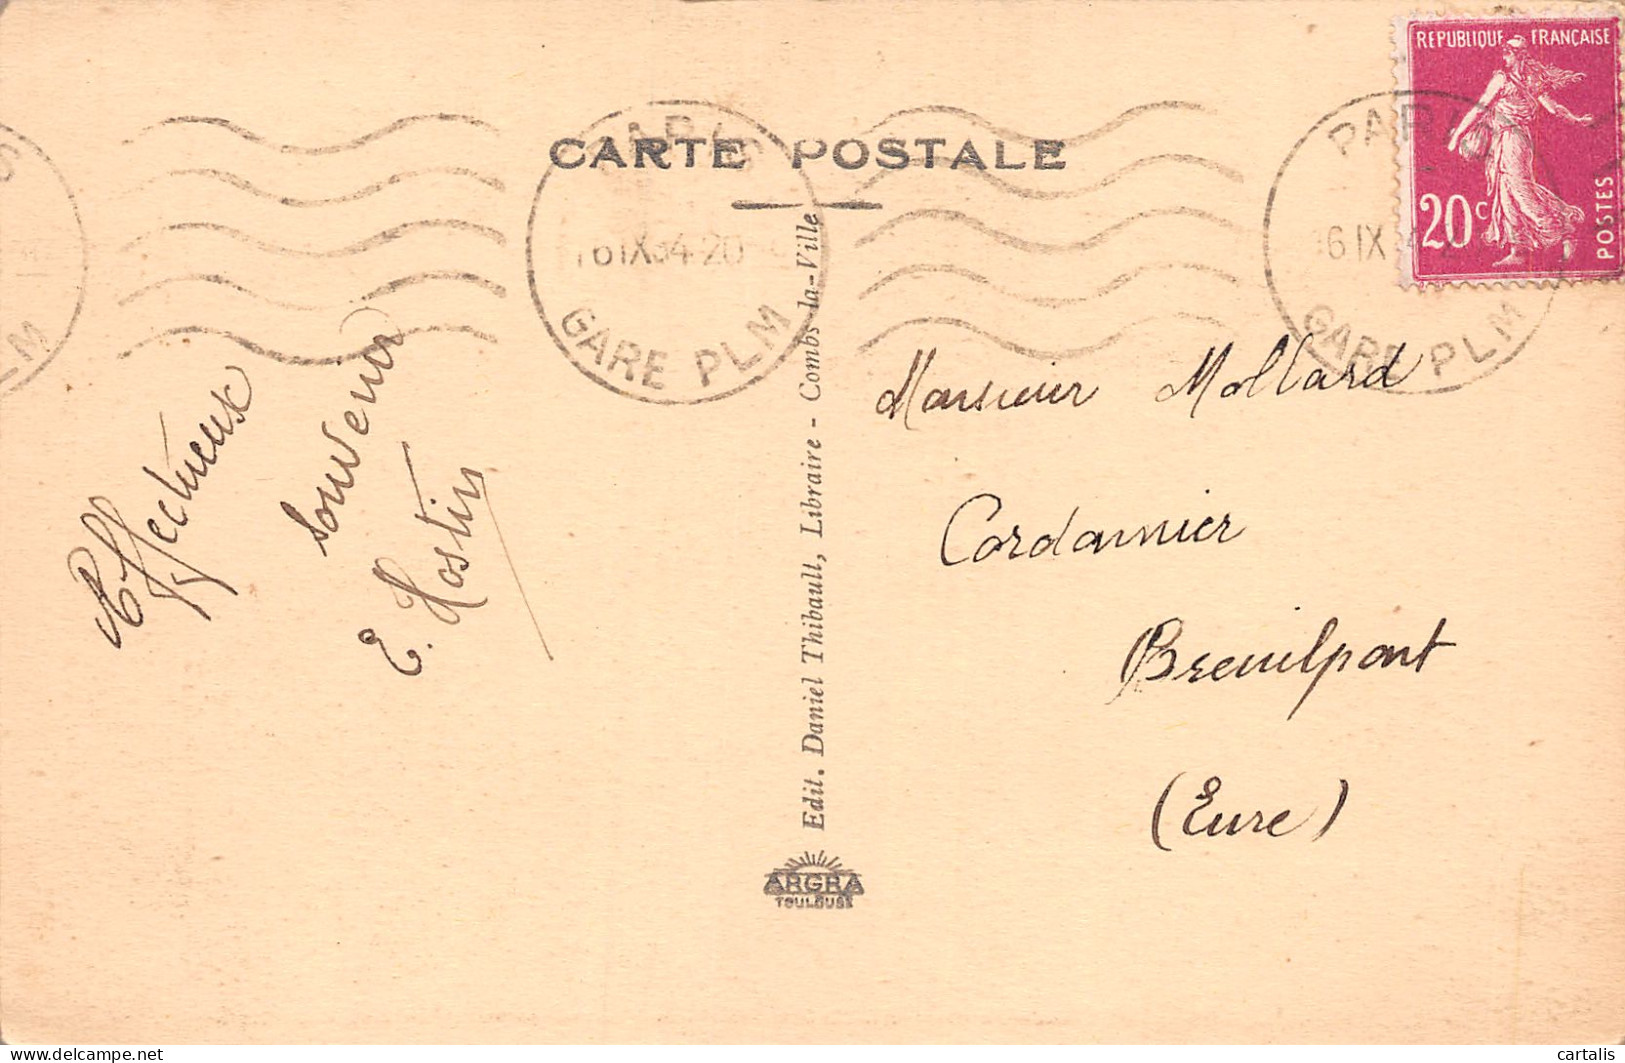 CARTE POSTALE
REPUBLIQUE FRANÇAISE
20c
POSTES
PARIS
16 IX 34 - 20
GARE PLM
PARIS
6 IX
GARE PLM
S
LM
Affectueux
souvenir
E. Hostin
Edit. Daniel Thibault, Libraire - Combs-la-Ville
ARGRA
TOULOUSE
Monsieur Mollard
Cordonnier
Breuilpont
(Eure)
cartalis